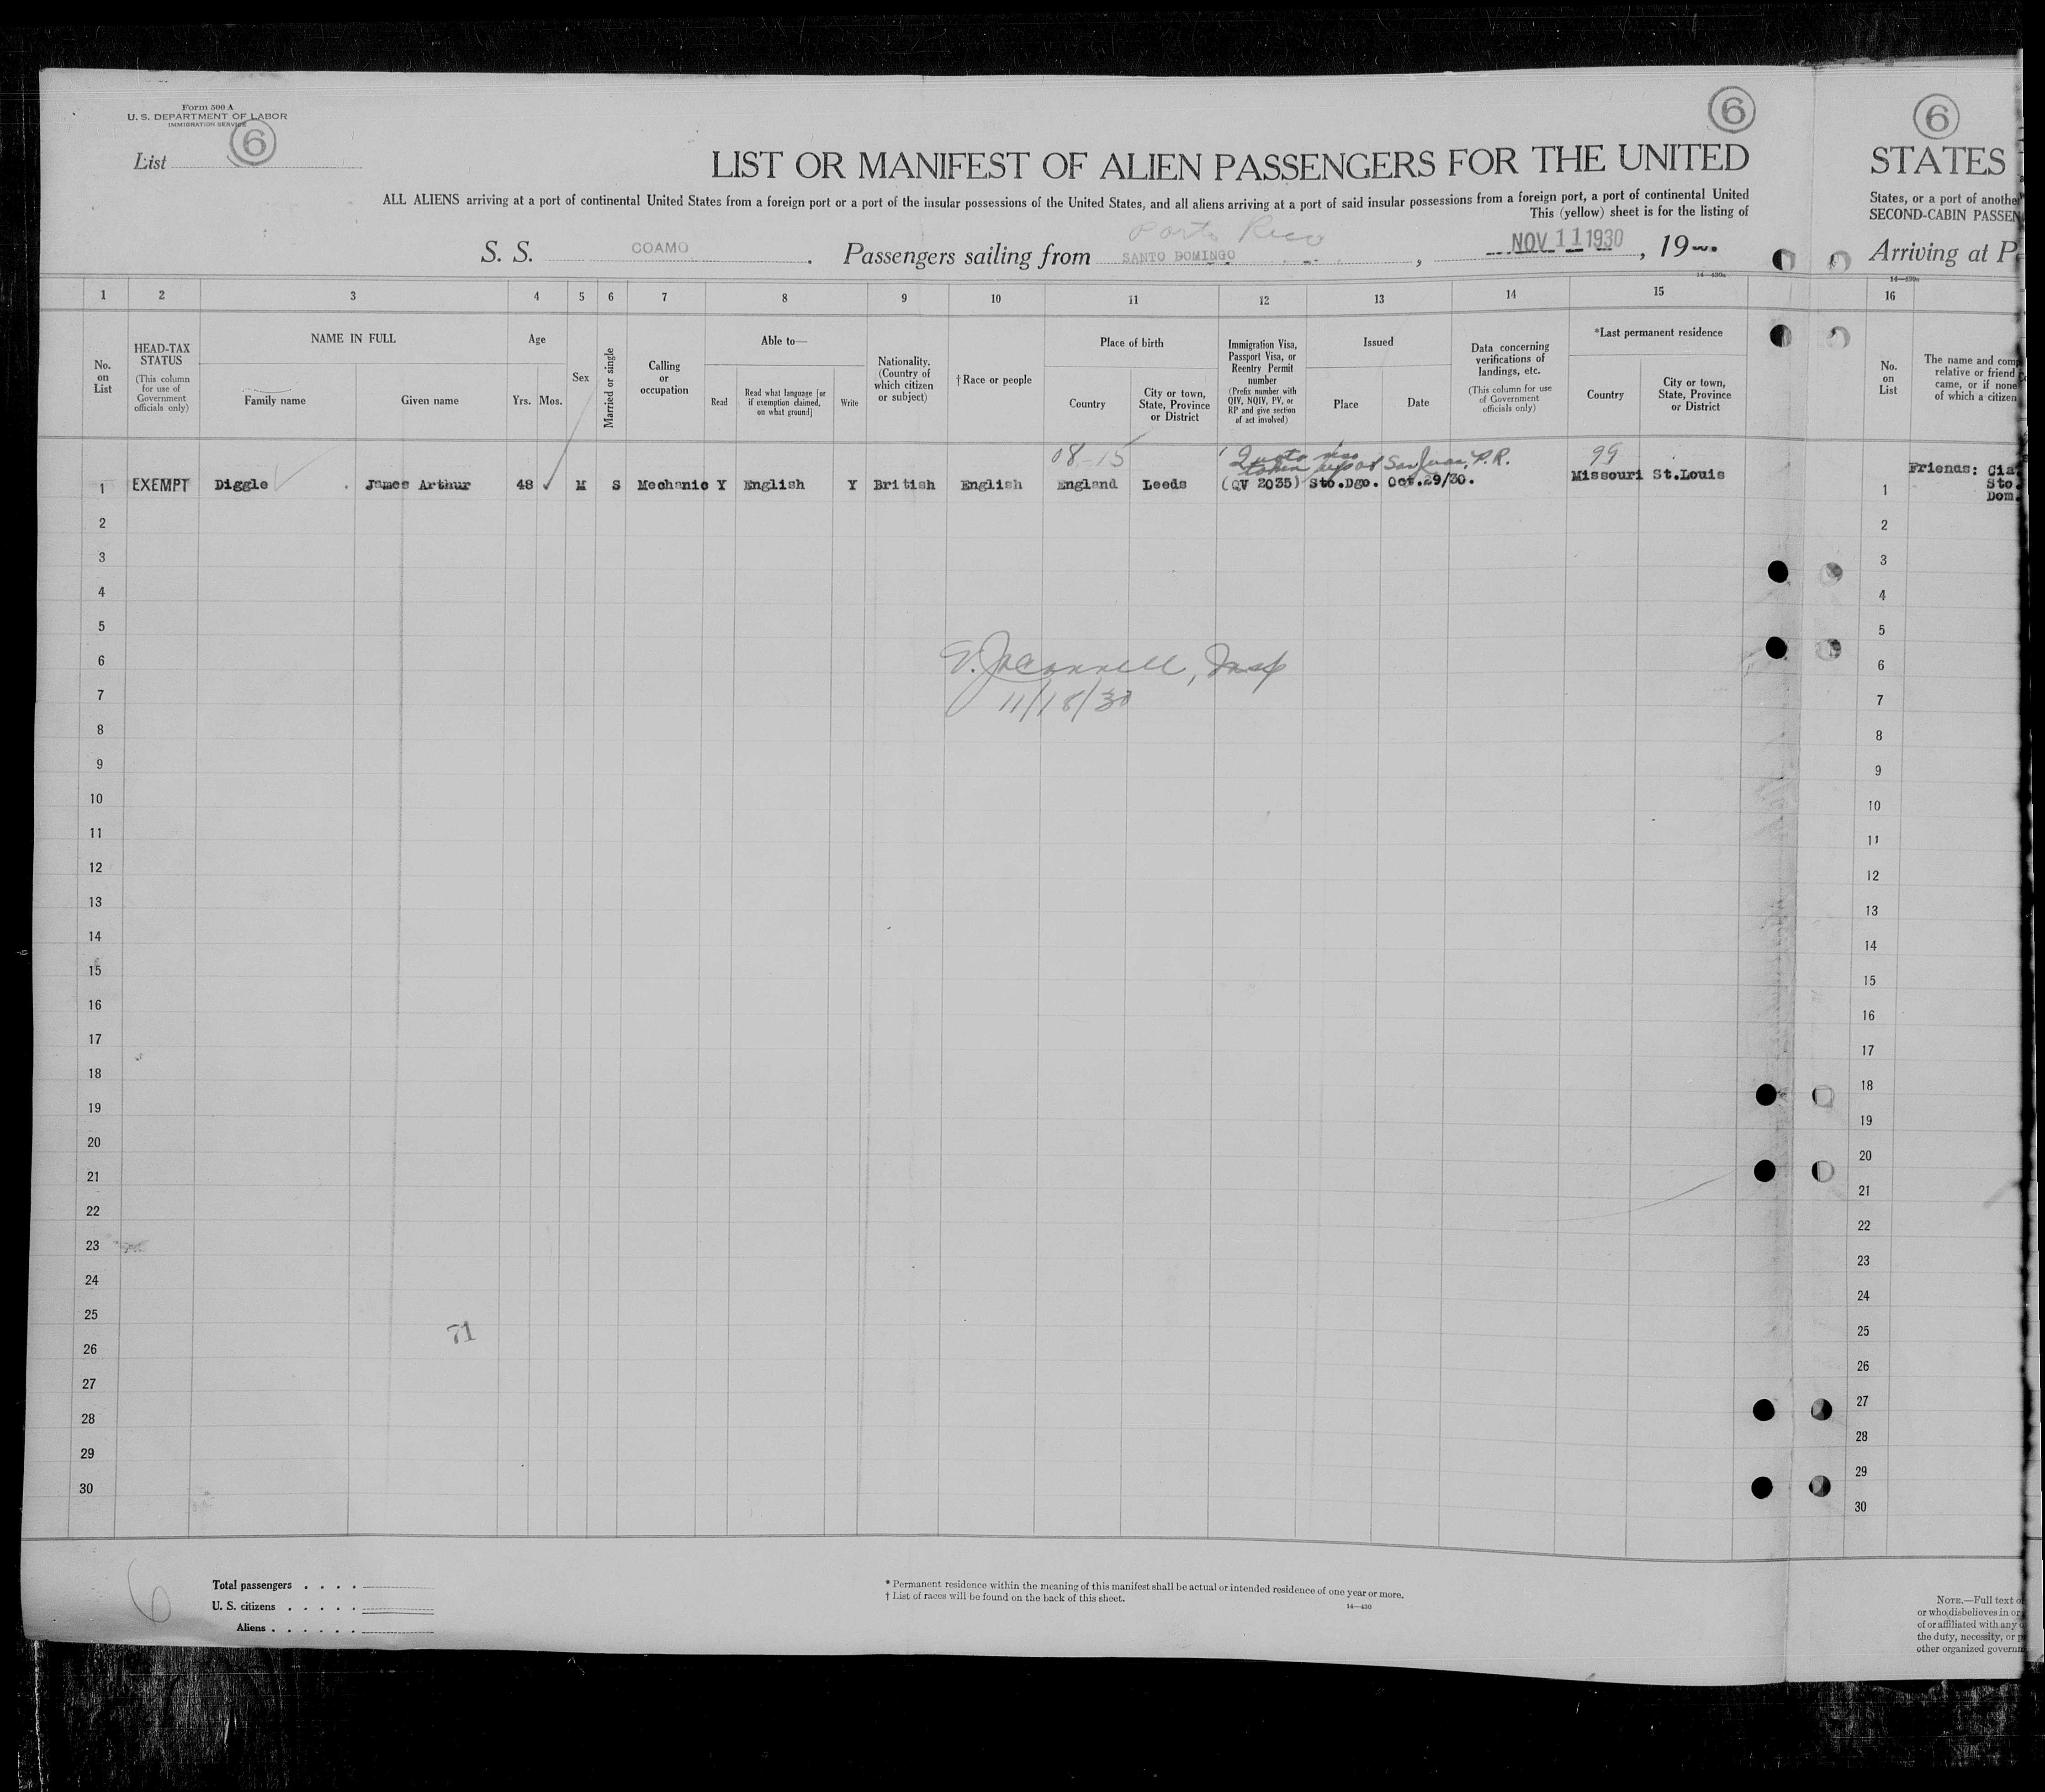 Form 500 A
U. S. DEPARTMENT OF LABOR
IMMIGRATION SERVICE
List 6
6
6
LIST OR MANIFEST OF ALIEN PASSENGERS FOR THE UNITED
STATES
ALL ALIENS arriving at a port of continental United States from a foreign port or a port of the insular possessions of the United States, and all aliens arriving at a port of said insular possessions from a foreign port, a port of continental United
States, or a port of anothe
This (yellow) sheet is for the listing of
SECOND-CABIN PASSEN
Porto Rico
S. S. COAMO. Passengers sailing from SANTO DOMINGO, NOV 11 1930, 19
Arriving at P
14—430a
14—430a
1 2 3 4 5 6 7 8 9 10 11 12 13 14 15 16
No. on List
HEAD-TAX STATUS
(This column for use of Government officials only)
NAME IN FULL
Family name
Given name
Age
Yrs. Mos.
Sex
Married or single
Calling or occupation
Able to—
Read
Read what language [or if exemption claimed, on what ground]
Write
Nationality. (Country of which citizen or subject)
† Race or people
Place of birth
Country
City or town, State, Province or District
Immigration Visa, Passport Visa, or Reentry Permit number
(Prefix number with QIV, NQIV, PV, or RP and give section of act involved)
Issued
Place
Date
Data concerning verifications of landings, etc.
(This column for use of Government officials only)
*Last permanent residence
Country
City or town, State, Province or District
No. on List
The name and comp
relative or friend
came, or if none
of which a citizen
08-15
Quota visa
taken up at San Juan, P.R.
99
1 EXEMPT Diggle James Arthur 48 M S Mechanic Y English Y British English England Leeds (QV 2035) Sto.Dgo. Oct.29/30. Missouri St.Louis
1 Friends: Cia
Sto
Dom.
2 2
3 3
4 4
5 5
6 6
7 7
8 8
9 9
10 10
11 11
12 12
13 13
14 14
15 15
16 16
17 17
18 18
19 19
20 20
21 21
22 22
23 23
24 24
25 25
26 26
27 27
28 28
29 29
30 30
Insp
11/18/30
71
6
Total passengers . . . .
U. S. citizens . . . . .
Aliens . . . . . .
* Permanent residence within the meaning of this manifest shall be actual or intended residence of one year or more.
† List of races will be found on the back of this sheet.
14—430
NOTE.—Full text o
or who disbelieves in or
of or affiliated with any
the duty, necessity, or p
other organized governm